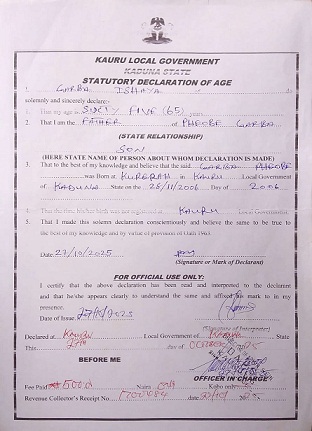 KAURU LOCAL GOVERNMENT
KADUNA STATE
STATUTORY DECLARATION OF AGE
1. GARBA ISHAYA do
solemnly and sincerely declare:-
That my age is SIXTY FIVE (65) years
2. That I am the FATHER of PHEOBE GARBA
(STATE RELATIONSHIP)
SON
(HERE STATE NAME OF PERSON ABOUT WHOM DECLARATION IS MADE)
3. That to the best of my knowledge and believe that the said GARBA PHEOBE
was Born at in KAURU Local Government
of KADUNA State on the 25/11/2006 Day of 2006
4. That the time his/her birth was not registered at KAURU Local Government
5. That I made this solemn declaration conscientiously and believe the same to be true to
the best of my knowledge and by virtue of provision of Oath 1963.
Date 27/10/2025
(Signature or Mark of Declarant)
FOR OFFICIAL USE ONLY:
I certify that the above declaration has been read and interpreted to the declarant
and that he/she appears clearly to understand the same and affixed his mark to in my
presence.
Date of Issue 27/10/2025
(Signature of Interpreter)
Declared at KAURU Local Government of KADUNA State
This 27th day of OCTOBER
BEFORE ME
OFFICER IN CHARGE
Fee Paid Naira Kobo only
Revenue Collector's Receipt No. date 27/10/